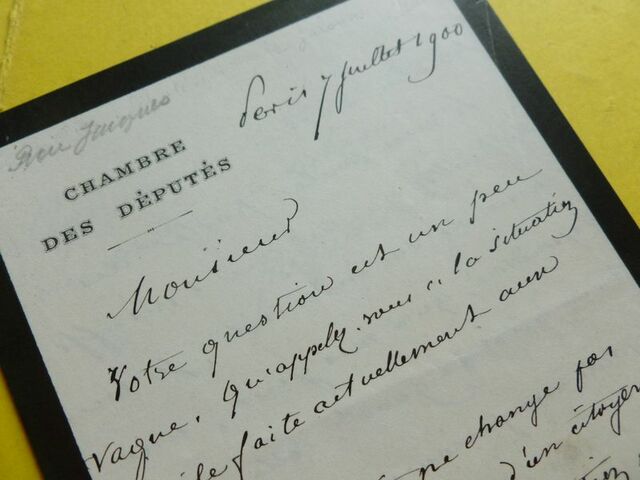 Piou Jacques
CHAMBRE
DES DÉPUTÉS
Paris 7 Juillet 1900
Monsieur
Votre question est un peu
vague. Qu'appelez-vous "la situation
faite actuellement aux
ne change pas
d'un citoyen